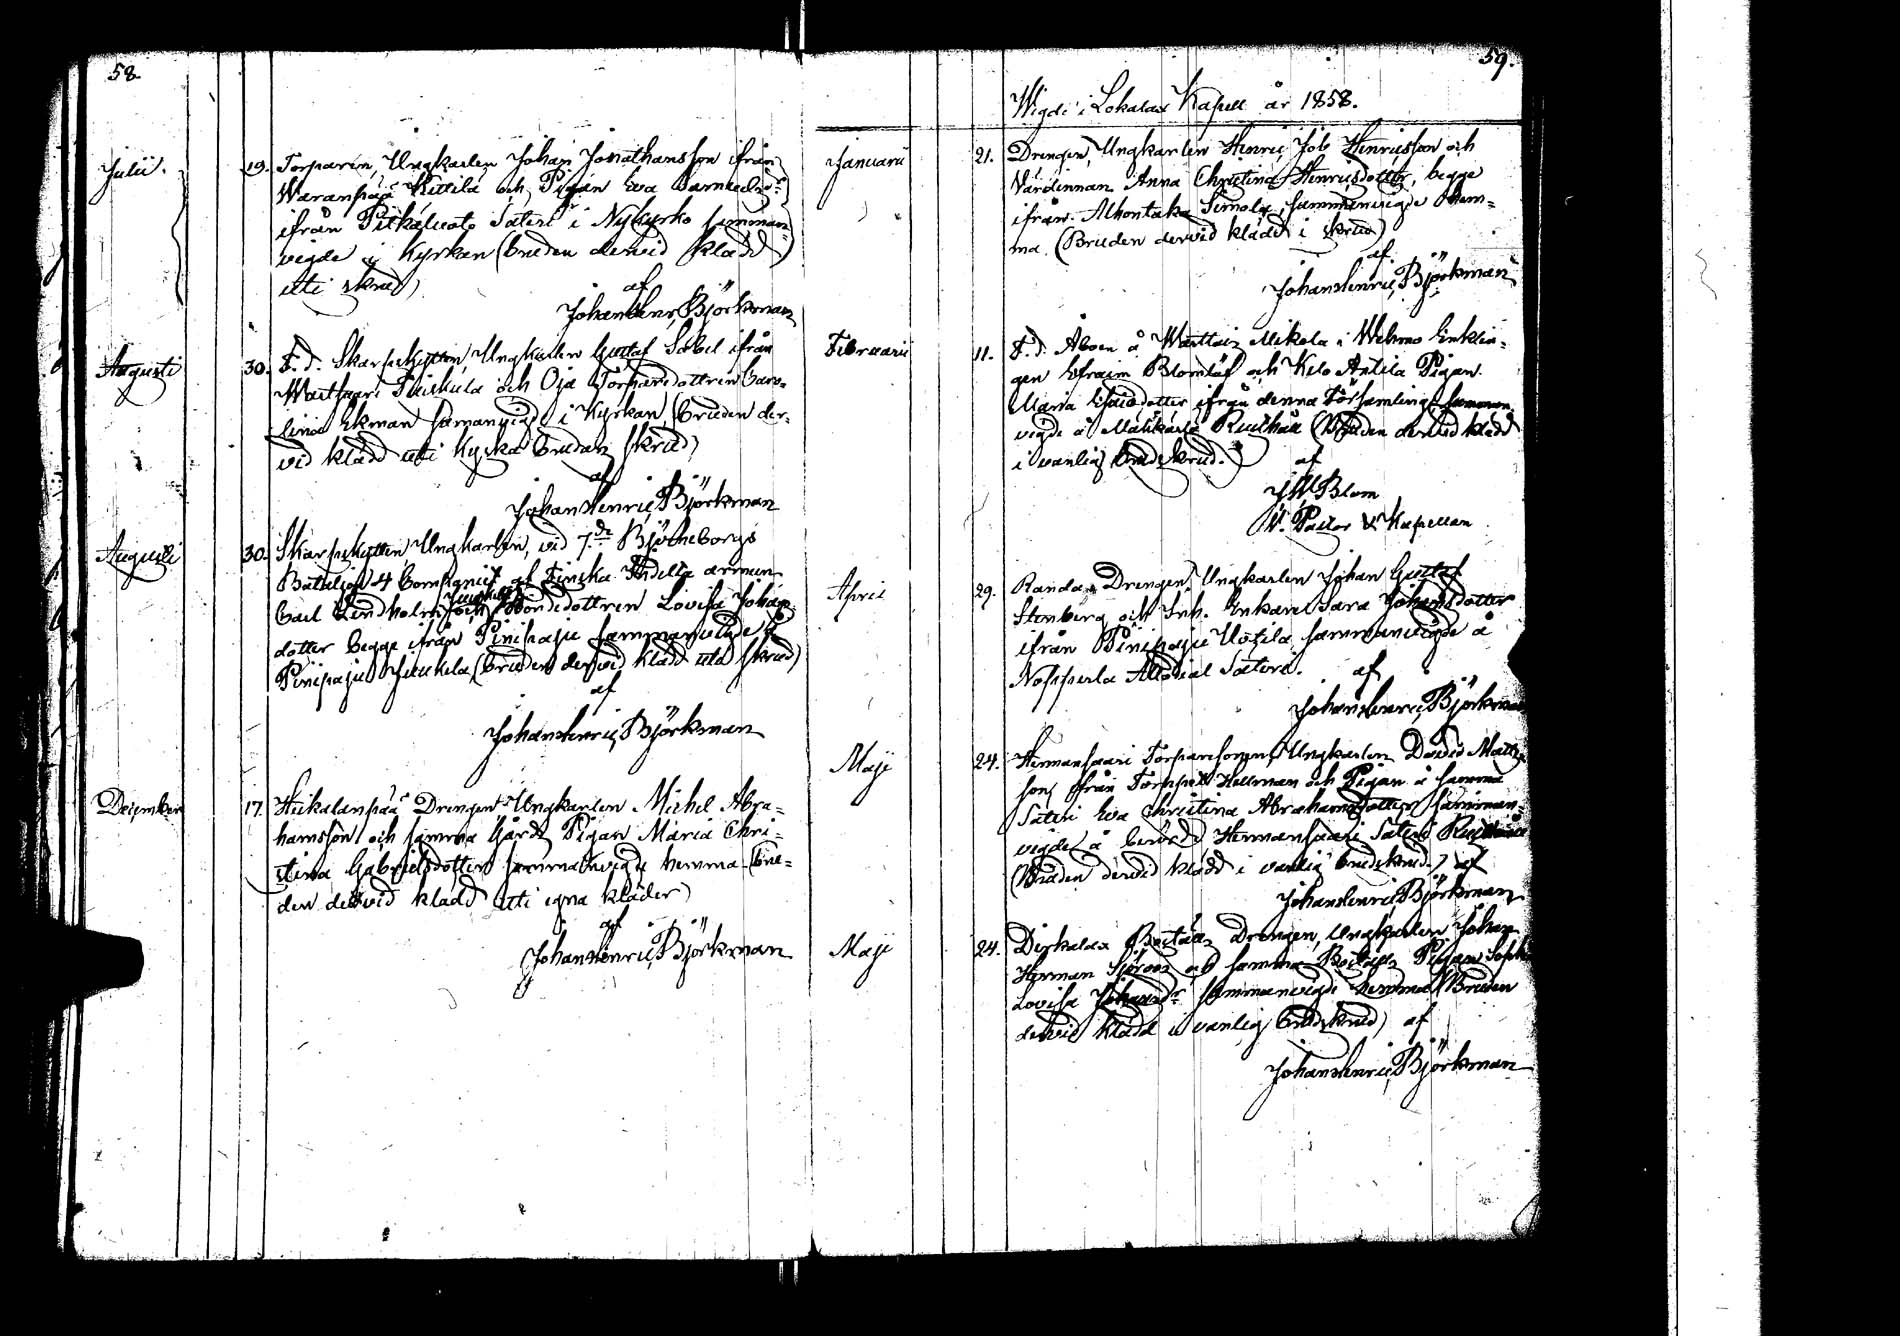 58.
Julii. 19. Torparen, Ungkarlen Johan Jonathansson ifrån
Waranpää Kittilä och Pigan Eva
ifrån Pitkäluoto Säteri i Nykyrko samman-
vigde i Kyrkan (bruden dervid klädd
uti skrud)
af
Johan Henr. Björkman
Augusti 30. F. d. Skarpskytten, Ungkarlen Gustaf Sabel ifrån
och Oja Torparedottren Caro-
lina Ekman sammanvigde i Kyrkan (bruden der-
vid klädd uti Kyrko brudas skrud)
af
Johan Henric Björkman
Augusti 30. Skarpskytten Ungkarlen, vid 7:de Björneborgs
Bataljon 4 Compagniet af Finska Indelta armen
Carl Lindholm och Bondedottren Lovisa Johans
dotter begge ifrån Pinipaju sammanvigde å
Pinipaju Juukela, (bruden dervid klädd uti skrud)
af
Johan Henric Björkman
December 17. Heikalanpää Drengen Ungkarlen Michel Abra-
hamsson och samma Gårds Pigan Maria Chri-
stina Gabrielsdotter sammanvigde hemma (bru-
den dervid klädd uti egna kläder)
af
Johan Henric Björkman
59.
Wigde i Lokalax Kapell år 1858.
Januarii 21. Drengen, Ungkarlen Henric Job Henricsson och
Värdinnan Anna Christina Henricsdotter, begge
ifrån Alhontaka Simola, sammanvigde hem-
ma. (Bruden dervid klädd i skrud)
af
Johan Henric Björkman
Februarii 11. F. d. Åboen å Mikola i Wehmo Enklin-
gen Efraim Blomlöf och Kelo Antila Pigan
Maria dotter ifrån denna Församling, samman-
vigde å (Bruden dervid klädd
i vanlig brudskrud.) af
J W Blom
V. Pastor & Kapellan
April 29. Randa Drengen, Ungkarlen Johan Gustaf
Stenberg och Inh. Enkan Sara Johansdotter
ifrån Pinipaju Uotila sammanvigde å
Nopperla Allodial Säteri. af
Johan Henric Björkman
Maji 24. Hermansaari Torparesonen, Ungkarlen David Matts-
son från Torpet Hellman och Pigan å samma
Säteri Eva Christina Abrahamsdotter samman-
vigde å berörde Hermansaari Säteri
(Bruden dervid klädd i vanlig brudskrud.) af
Johan Henric Björkman
Maji 24. Dirkalax Boställs Drengen, Ungkarlen Johan
Herman Sjöroos och samma Boställs Pigan Sophi
Lovisa Johansdr sammanvigde hemma (Bruden
dervid klädd i vanlig brudskrud) af
Johan Henric Björkman